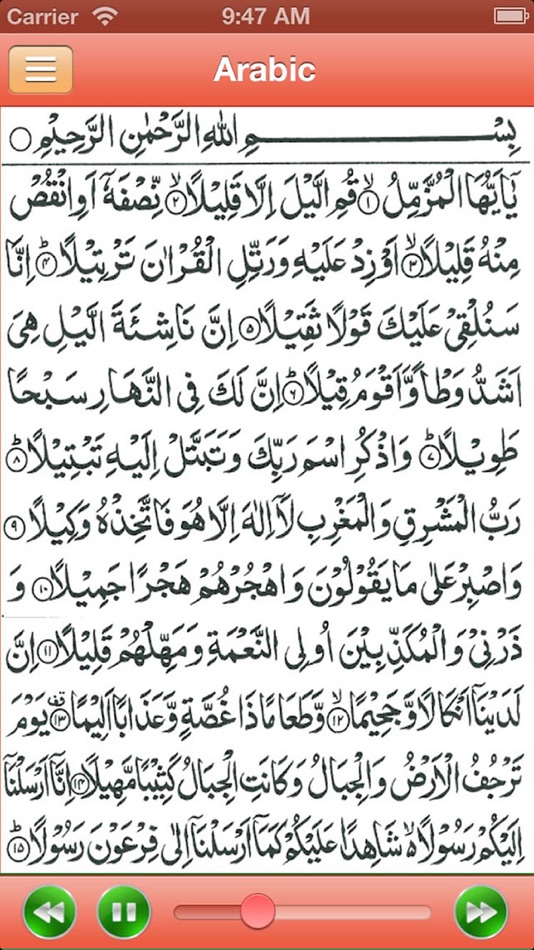 Carrier 9:47 AM
Arabic
بِسْمِ اللهِ الرَّحْمٰنِ الرَّحِيْمِ
يٰۤاَيُّهَا الْمُزَّمِّلُ ۙ﴿۱﴾ قُمِ الَّيْلَ اِلَّا قَلِيْلًا ۙ﴿۲﴾ نِّصْفَهٗۤ اَوِ انْقُصْ
مِنْهُ قَلِيْلًا ۙ﴿۳﴾ اَوْ زِدْ عَلَيْهِ وَرَتِّلِ الْقُرْاٰنَ تَرْتِيْلًا ؕ﴿۴﴾ اِنَّا
سَنُلْقِيْ عَلَيْكَ قَوْلًا ثَقِيْلًا ﴿۵﴾ اِنَّ نَاشِئَةَ الَّيْلِ هِيَ
اَشَدُّ وَطْاً وَّاَقْوَمُ قِيْلًا ؕ﴿۶﴾ اِنَّ لَكَ فِي النَّهَارِ سَبْحًا
طَوِيْلًا ؕ﴿۷﴾ وَاذْكُرِ اسْمَ رَبِّكَ وَتَبَتَّلْ اِلَيْهِ تَبْتِيْلًا ؕ﴿۸﴾
رَبُّ الْمَشْرِقِ وَالْمَغْرِبِ لَاۤ اِلٰهَ اِلَّا هُوَ فَاتَّخِذْهُ وَكِيْلًا ﴿۹﴾
وَاصْبِرْ عَلٰى مَا يَقُوْلُوْنَ وَاهْجُرْهُمْ هَجْرًا جَمِيْلًا ﴿۱۰﴾ وَ
ذَرْنِيْ وَالْمُكَذِّبِيْنَ اُولِي النَّعْمَةِ وَمَهِّلْهُمْ قَلِيْلًا ﴿۱۱﴾ اِنَّ
لَدَيْنَاۤ اَنْكَالًا وَّجَحِيْمًا ۙ﴿۱۲﴾ وَّطَعَامًا ذَا غُصَّةٍ وَّعَذَابًا اَلِيْمًا ﴿۱۳﴾ يَوْمَ
تَرْجُفُ الْاَرْضُ وَالْجِبَالُ وَكَانَتِ الْجِبَالُ كَثِيْبًا مَّهِيْلًا ﴿۱۴﴾ اِنَّاۤ اَرْسَلْنَاۤ
اِلَيْكُمْ رَسُوْلًا ۙ شَاهِدًا عَلَيْكُمْ كَمَاۤ اَرْسَلْنَاۤ اِلٰى فِرْعَوْنَ رَسُوْلًا ؕ﴿۱۵﴾